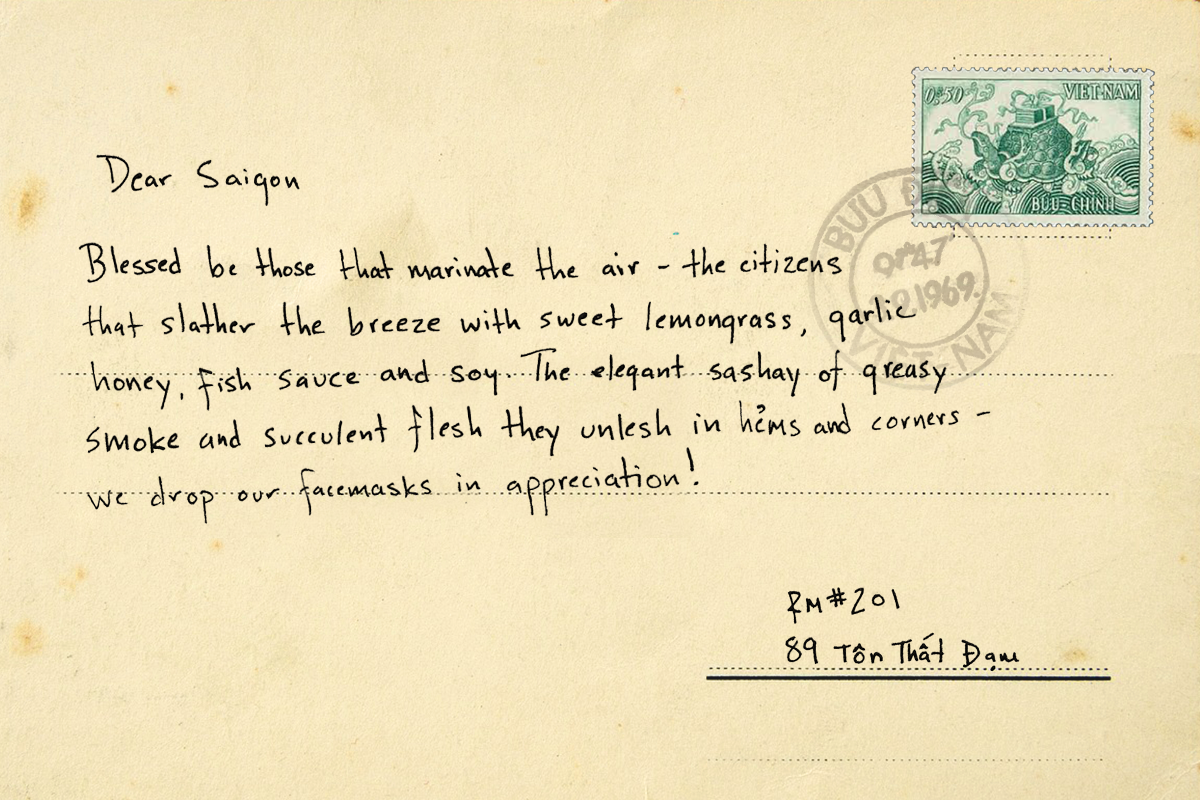 0$50
VIET-NAM
BƯU-CHÍNH
BƯU
1969.
VIET NAM
Dear Saigon
Blessed be those that marinate the air - the citizens
that slather the breeze with sweet lemongrass, garlic
honey, fish sauce and soy. The elegant sashay of greasy
smoke and succulent flesh they unlesh in hẻms and corners -
we drop our facemasks in appreciation!
RM#201
89 Tôn Thất Đạm